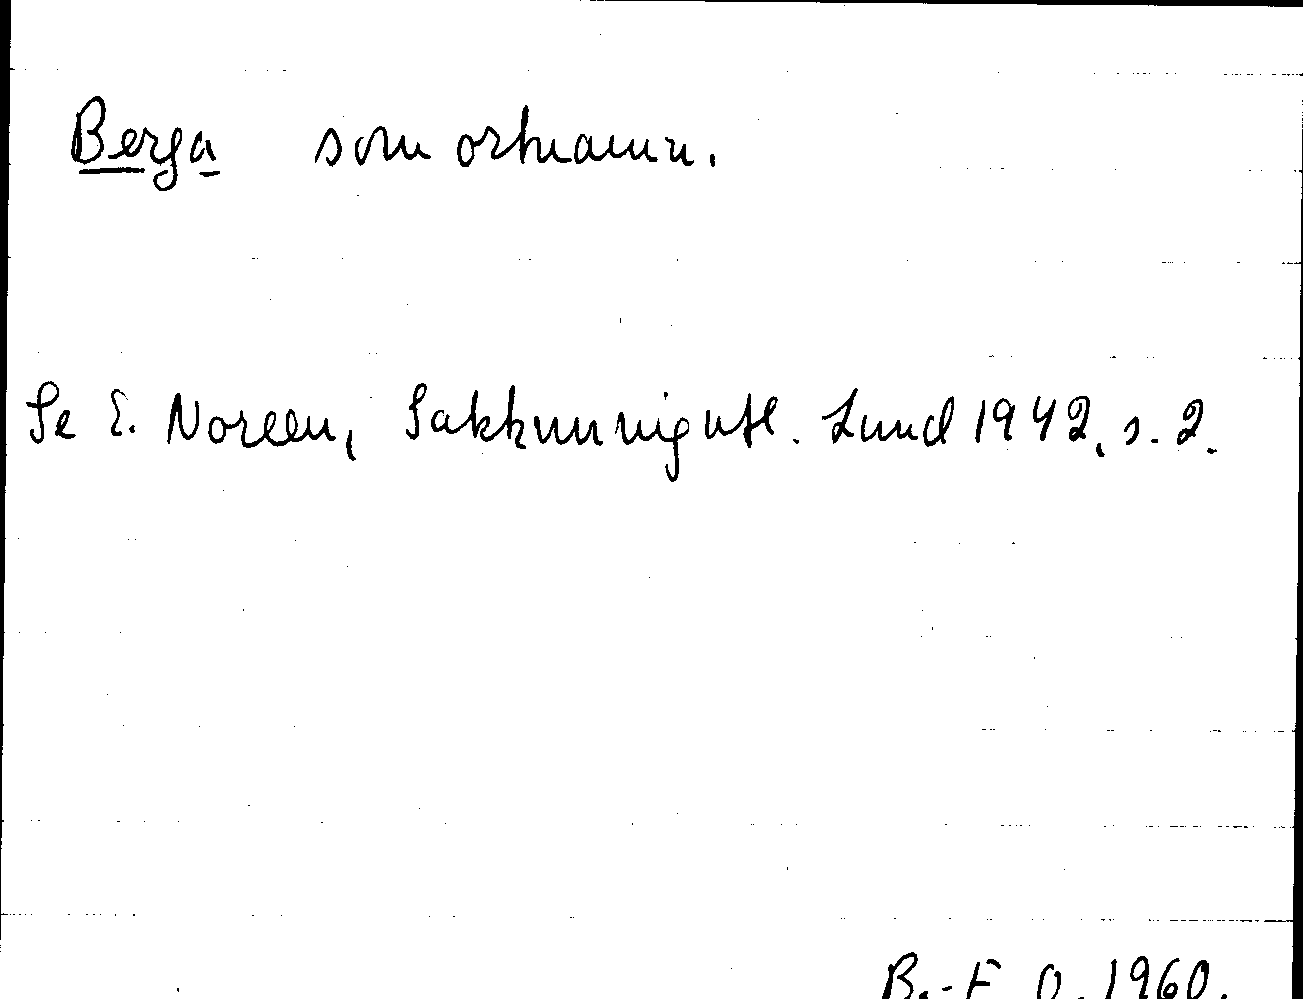 Berga som ortnamn.
Se E. Noreen, Sakkunnigutl. Lund 1942, s. 2.
B.-F O. 1960.